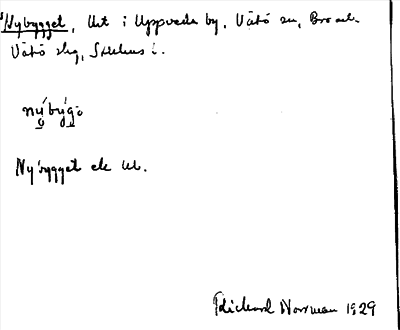 Nybygget, Urt i Uppveda by, Vätö sn, Bro och
Vätö skg, Sthlms l.
nýbýgö
Nybygget ek ut.
Rickard Norrman 1929